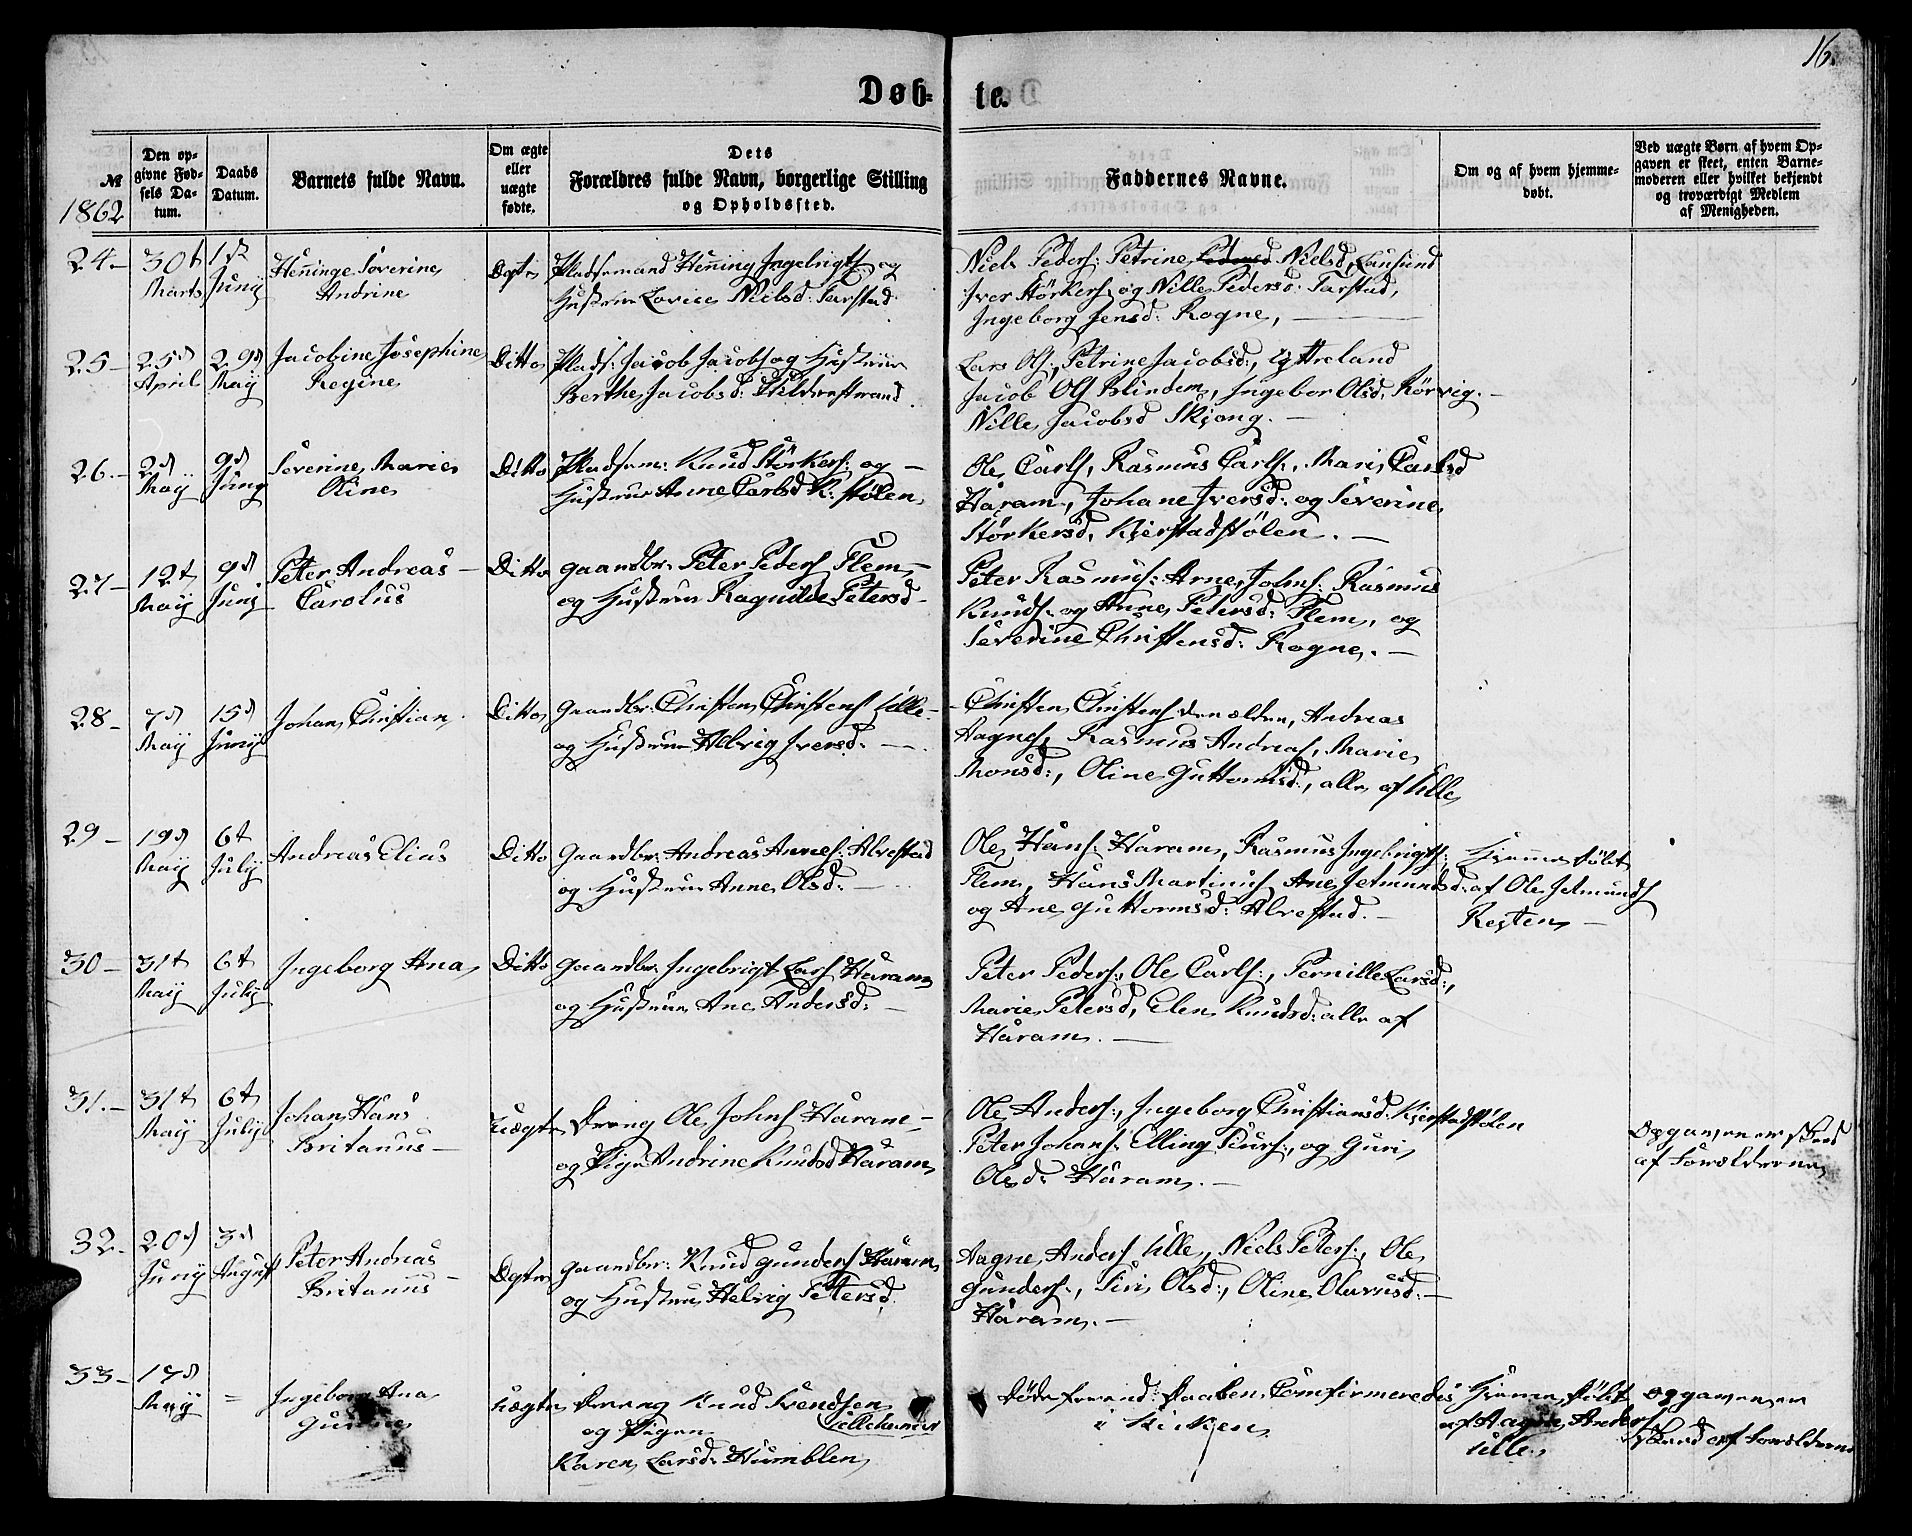 16.
Døb- te.
№
1862
Den op-
givne Fød-
sels Da-
tum.
Daabs
Datum.
Barnets fulde Navn.
Om ægte
eller
uægte
fødte.
Dets
Forældres fulde Navn, borgerlige Stilling
og Opholdssted.
Faddernes Navne.
Om og af hvem hjemme-
døbt.
Ved uægte Børn af hvem Op-
gaven er skeet, enten Barne-
moderen eller hvilket bekjendt
og troværdigt Medlem
af Menigheden.
24- 30t
Marts
1ste
Junÿ
Henninge Severine
Andrine
Ægte
Pladsemand Henning Ingebrigts. og
Hustrue Lovice Nielsd: Tarstad
Niels Peders: Petrine Pedersd Nielsd, Lausund
Iver Størkers. og Nille Pedersd: Tarstad,
Ingeborg Jensd: Rogne,
25- 25d
April
29d
May
Jacobine Josephine
Regine
Ditto
Plads: Jacob Jacobs og Hustrue
Berthe Jacobsd:
Lars Ols, Petrine Jacobsd:, Ytreland
Jacob Ols Blindem, Ingebor Olsd. Rørvig.
Nille Jacobsd Skjong.
26- 2d
May
9d
Juny
Severine Marie
Oline
Ditto
Pladsem: Knud Størkers: og
Hustrue Anne Carlsd K:stølen
Ole Carls, Rasmus Carls., Mari Carlsd
Haram, Johane Iversd: og Severine
Størkersd, Kjerstadstølen.
27- 12t
Maÿ
9d
Junÿ
Peter Andreas
Carolus
Ditto
Gaardbr: Peter Peders Flem,
og Hustrue Ragnilde Petersd
Peter Rasmus: Arne Johns: Rasmus
Knuds. og Anne Petersd: Flem, og
Severine Christensd: Rogne.
28- 7d
Maÿ
15d
Junÿ
Johan Christian
Ditto
Gaardbr: Christen Christens Ulle
og Hustrue Helvig Iversd:
Christen Christens den ældre, Andreas
Aagnes, Rasmus Andreas, Marie
Monsd:, Oline Guttormsd:, alle af Ulle
29- 19d
Maÿ
6t
Julÿ
Andreas Elias
Ditto
Gaardbr: Andreas Annes: Alvestad
og Hustrue Anne Olsd:
Ole Hans: Haram, Rasmus Ingebrigts:
Flem, Hans Martinus, Ane Jetmundsd:
og Ane Guttormsd: Alvestad.
Hjemmedøbt
af Ole Jetmunds
Resten
30- 31t
Maÿ
6t
Julÿ
Ingeborg Ana
Ditto
Gaardbr: Ingebrigt Lars Haram
og Hustrue Ane Andersd:
Peter Peders:, Ole Carls:, Pernille Larsd:,
Marie Petersd, Elen Knudsd: alle af
Haram.
31.- 31t
Maÿ
6t
Julÿ
Johan Hans
Britanus
Uægte
Dreng Ole Johns Haram
og Pige Andrine Knudsd Haram
Ole Anders:, Ingeborg Christiansd: Kjerstadstølen
Peter Johans: Elling Siurs:, og Guri
Olsd: Haram.
Opgaven er skeed
af Forældrene
32. 20d
Junÿ
3d
August
Peter Andreas
Britanus
Ægte
Gaardbr: Knud Gunders Haram
og Hustrue Helvig Petersd.
Aagne Anders Ulle, Niels Peters:, Ole
Gunders:, Siri Olsd:, Oline Olausd:
Haram.
33- 17d
Maÿ
=
Ingeborg Ana
Uægte
Dreng Knud Svendsen
og Pigen
Karen Larsd: Humblen
Døde forend Daaben Comfirmeredes
i Kirken
Hjemmedøbt
af Aagne Anders
Ulle
Opgaven er
skeed af Forældrene